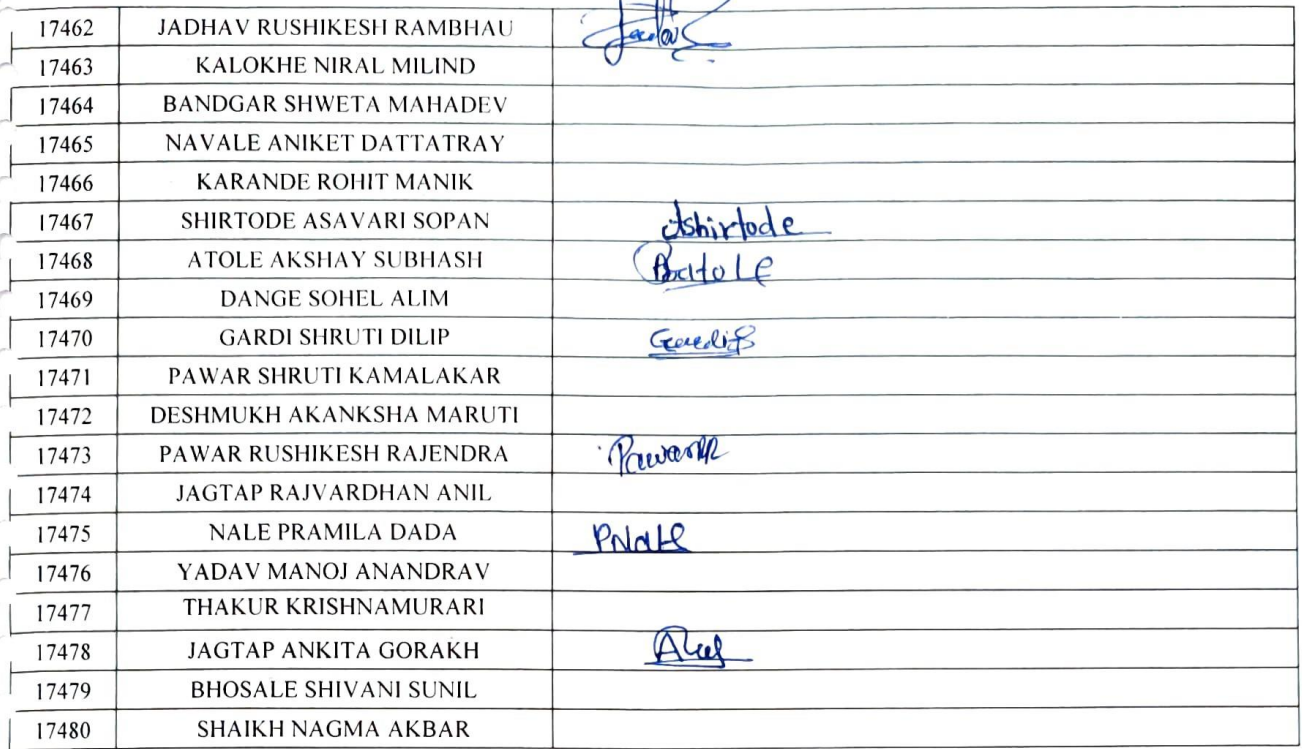 17462 JADHAV RUSHIKESH RAMBHAU
17463 KALOKHE NIRAL MILIND
17464 BANDGAR SHWETA MAHADEV
17465 NAVALE ANIKET DATTATRAY
17466 KARANDE ROHIT MANIK
17467 SHIRTODE ASAVARI SOPAN Ashirtode
17468 ATOLE AKSHAY SUBHASH
17469 DANGE SOHEL ALIM
17470 GARDI SHRUTI DILIP
17471 PAWAR SHRUTI KAMALAKAR
17472 DESHMUKH AKANKSHA MARUTI
17473 PAWAR RUSHIKESH RAJENDRA PawarRR
17474 JAGTAP RAJVARDHAN ANIL
17475 NALE PRAMILA DADA PNale
17476 YADAV MANOJ ANANDRAV
17477 THAKUR KRISHNAMURARI
17478 JAGTAP ANKITA GORAKH
17479 BHOSALE SHIVANI SUNIL
17480 SHAIKH NAGMA AKBAR